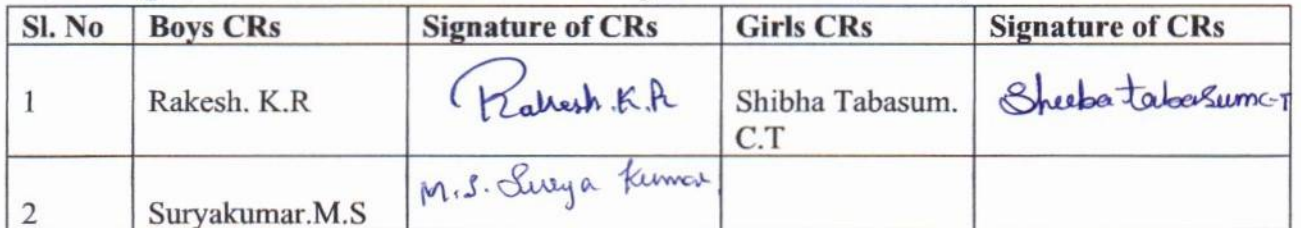 Sl. No Boys CRs Signature of CRs Girls CRs Signature of CRs
1 Rakesh. K.R Rakesh.K.R Shibha Tabasum. C.T Sheeba tabasum C-T
2 Suryakumar.M.S M.S. Surya Kumar